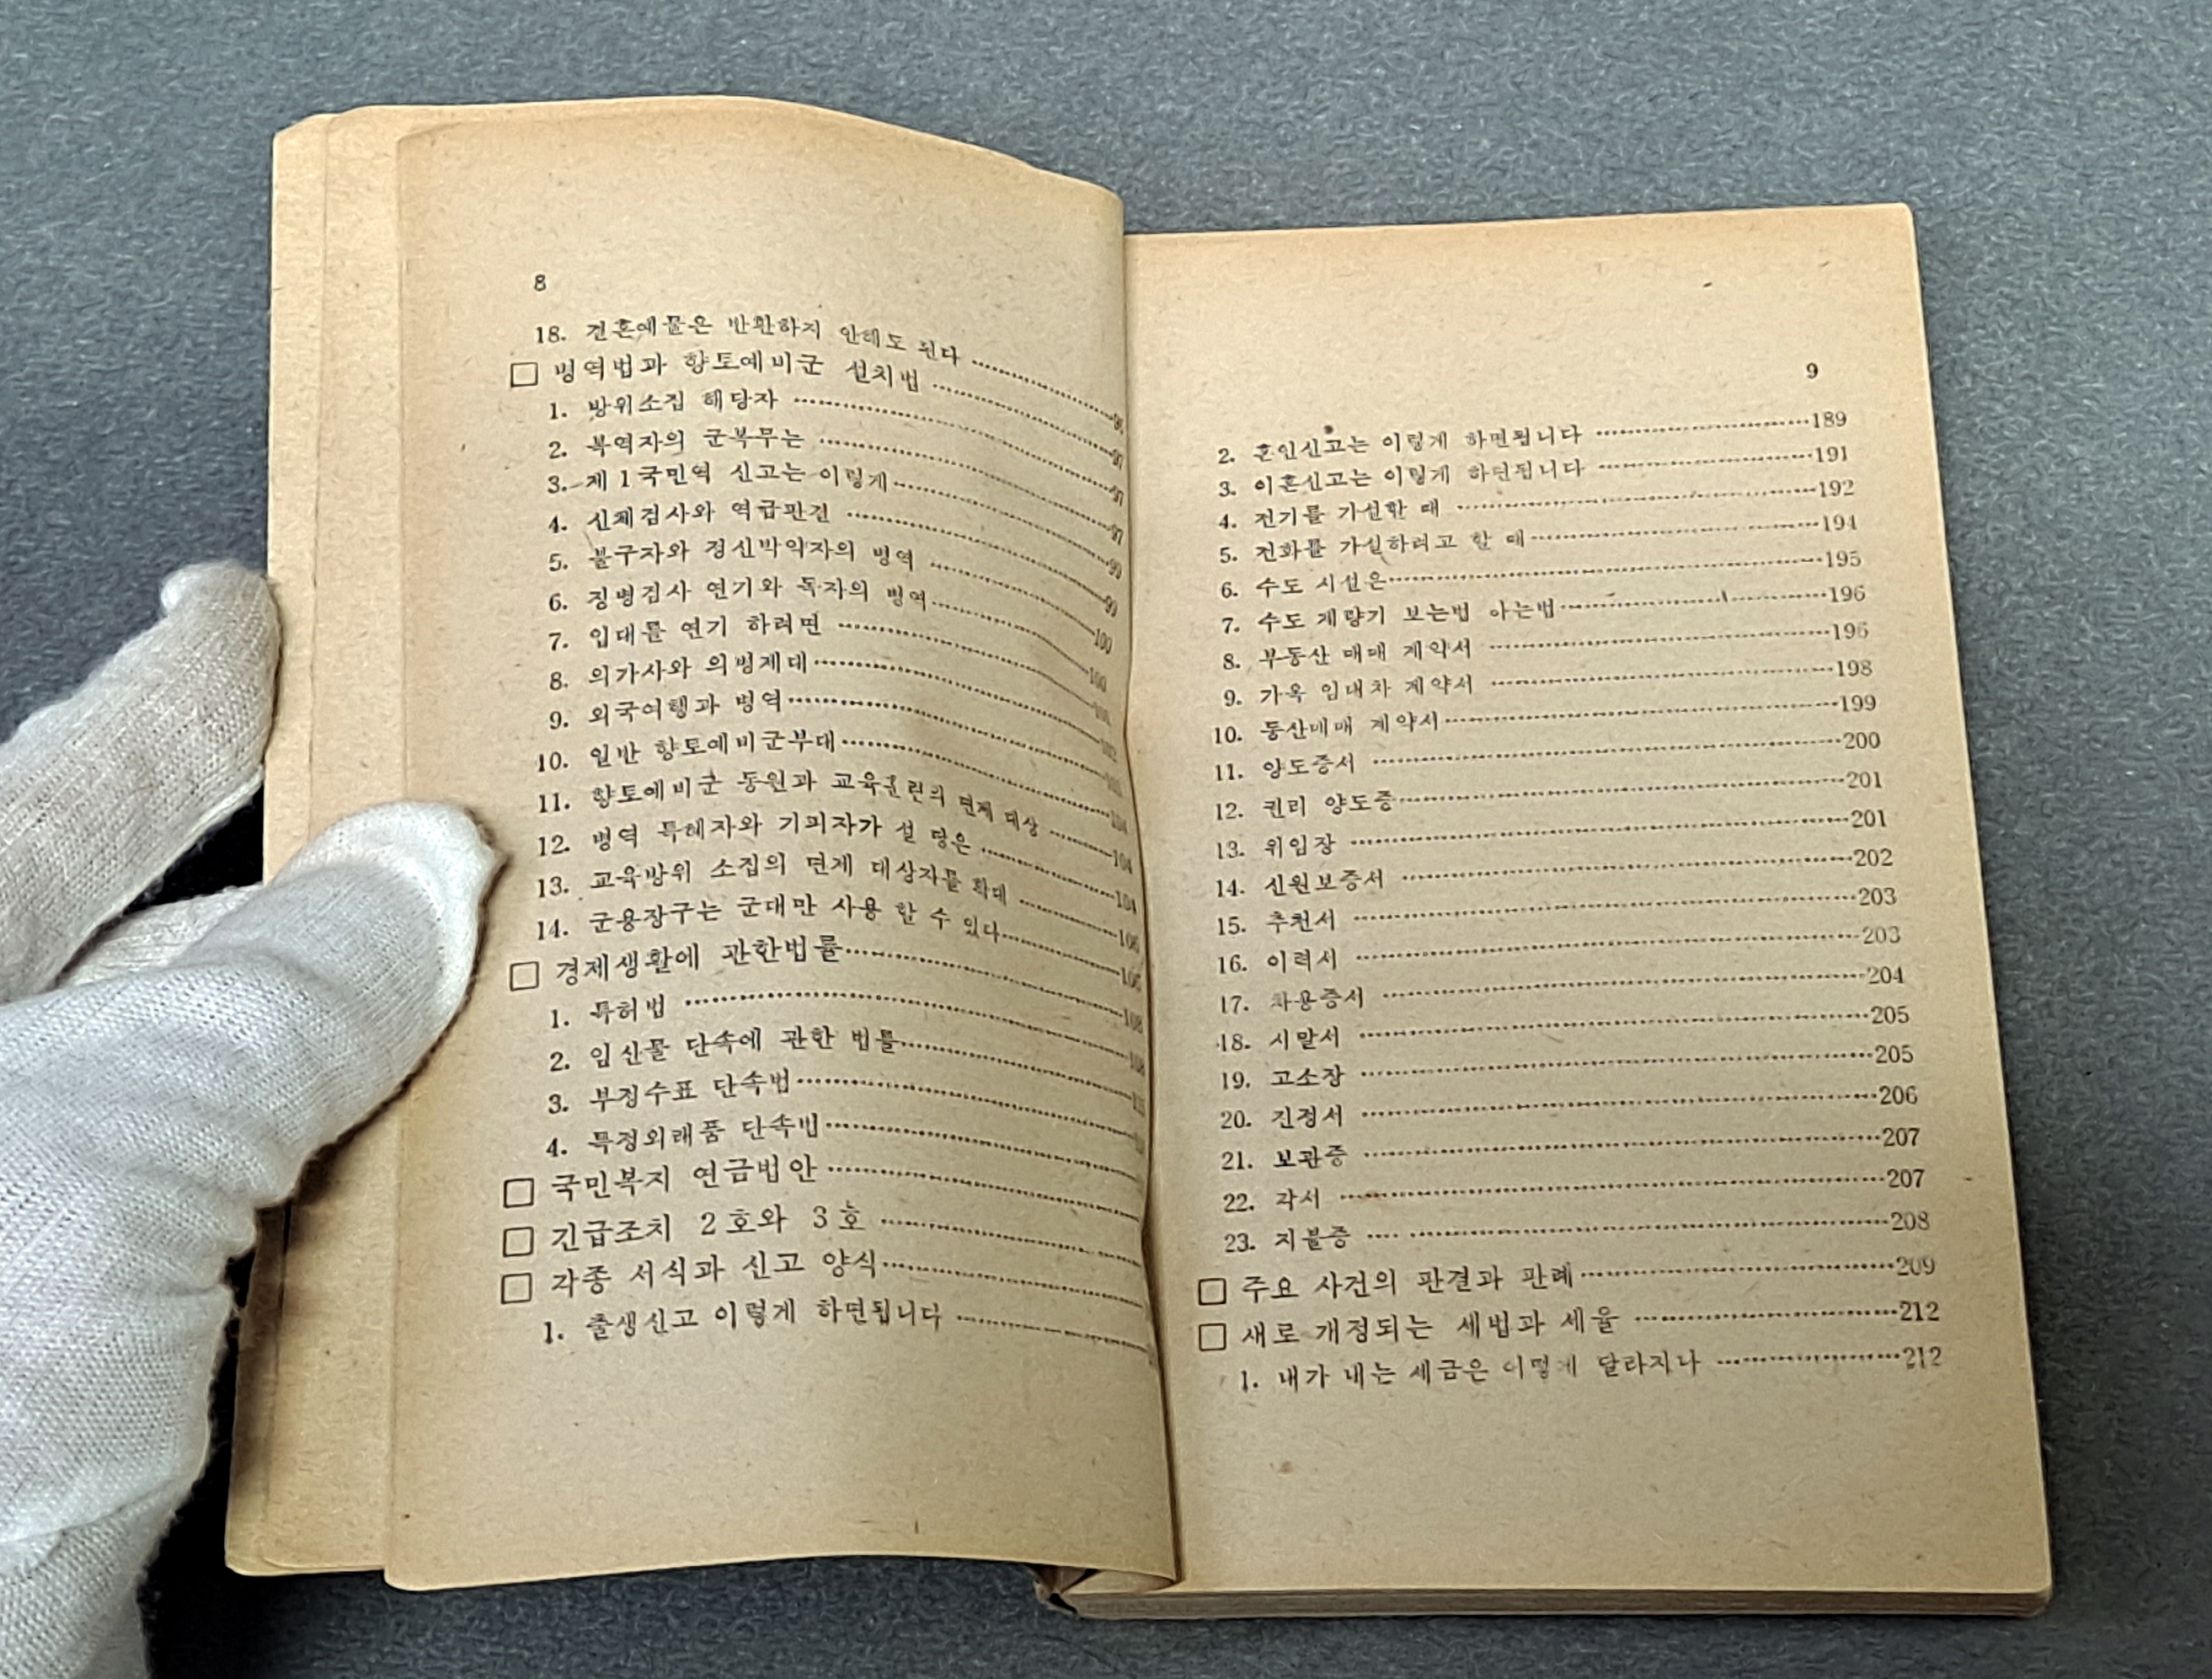 8
18. 결혼예물은 반환하지 안해도 된다
□ 병역법과 향토예비군 설치법 97
1. 방위소집 해당자 97
2. 복역자의 군복무는 97
3. 제1국민역 신고는 이렇게 99
4. 신체검사와 역급판정 99
5. 불구자와 정신박약자의 병역 100
6. 징병검사 연기와 독자의 병역 100
7. 입대를 연기 하려면
8. 의가사와 의병제대
9. 외국여행과 병역
10. 일반 향토예비군부대 104
11. 향토예비군 동원과 교육훈련의 면제 대상 104
12. 병역 특혜자와 기피자가 설 땅은 104
13. 교육방위 소집의 면제 대상자를 확대
14. 군용장구는 군대만 사용 할 수 있다
□ 경제생활에 관한법률 108
1. 특허법 108
2. 임산물 단속에 관한 법률
3. 부정수표 단속법
4. 특정외래품 단속법
□ 국민복지 연금법안
□ 긴급조치 2호와 3호
□ 각종 서식과 신고 양식
1. 출생신고 이렇게 하면됩니다
9
2. 혼인신고는 이렇게 하면됩니다 189
3. 이혼신고는 이렇게 하면됩니다 191
4. 전기를 가설할 때 192
5. 전화를 가설하려고 할 때 194
6. 수도 시설은 195
7. 수도 계량기 보는법 아는법 196
8. 부동산 매매 계약서 196
9. 가옥 임대차 계약서 198
10. 동산매매 계약서 199
11. 양도증서 200
12. 권리 양도증 201
13. 위임장 201
14. 신원보증서 202
15. 추천서 203
16. 이력서 203
17. 차용증서 204
18. 시말서 205
19. 고소장 205
20. 진정서 206
21. 보관증 207
22. 각서 207
23. 지불증 208
□ 주요 사건의 판결과 판례 209
□ 새로 개정되는 세법과 세율 212
1. 내가 내는 세금은 어떻게 달라지나 212